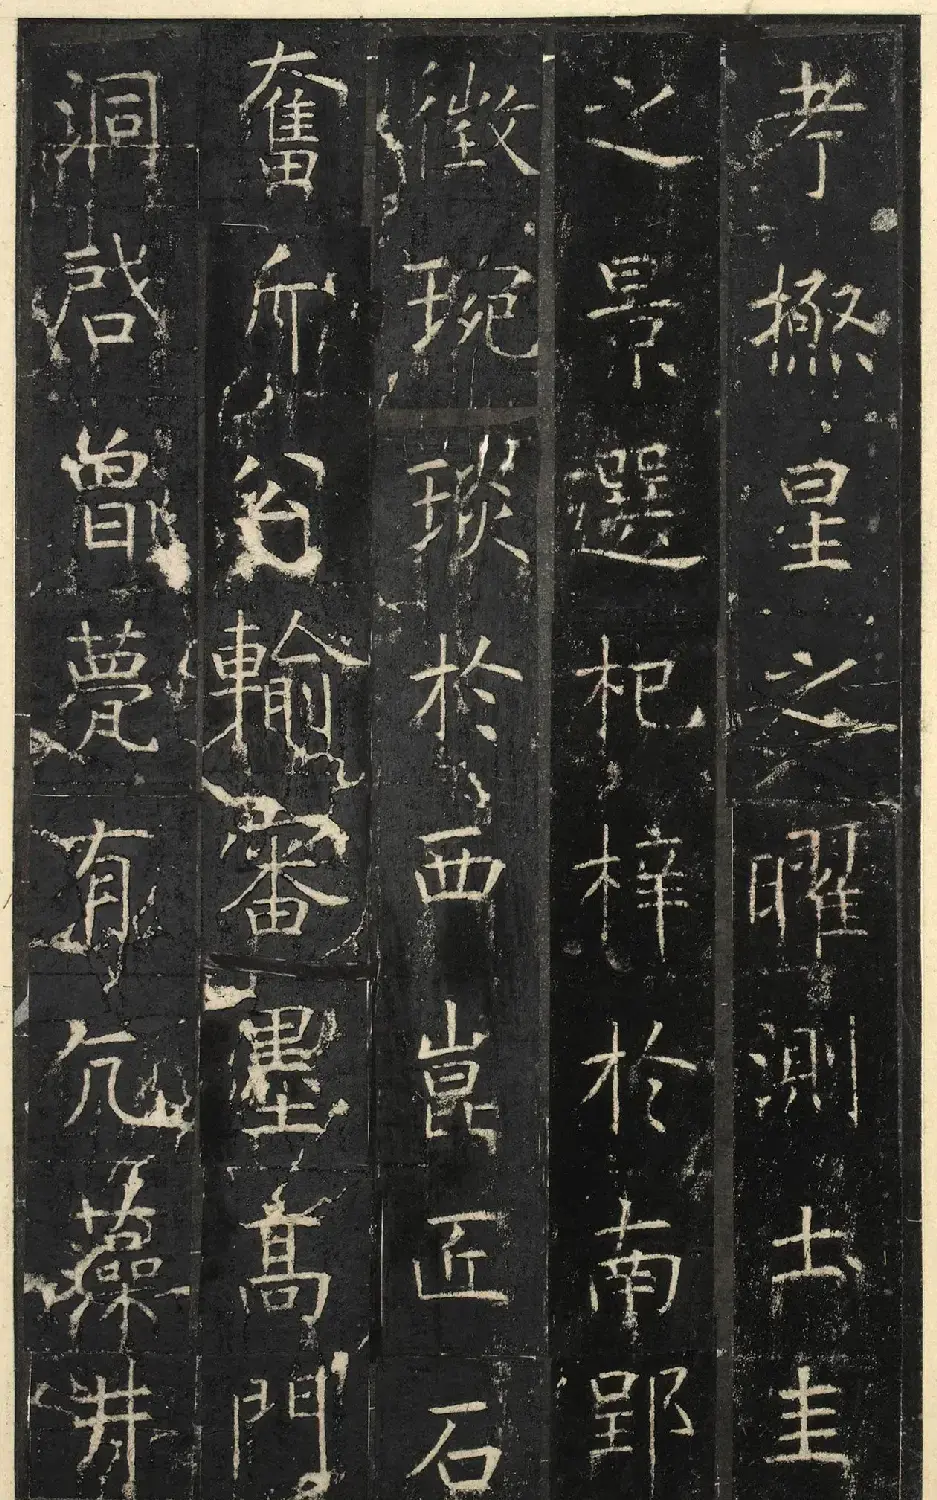 考極星之曜測土圭
之景選杞梓於南郢
徵琬琰於西崑匠石
奮斤公輸審墨高門
洞啓曾甍有亢藻井